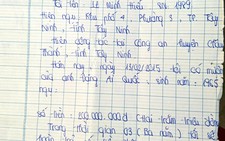 Tôi tên: Lê Minh Hiếu sn: 1989
hiện ngụ: Khu phố 4, Phường 3, TP. Tây
Ninh, tỉnh Tây Ninh
Hiện công tác tại công an huyện Châu
Thành, tỉnh Tây Ninh
Hôm nay, ngày 13/02/2015 tôi có mượn
của anh Đặng Ái Quốc, sinh năm: 1965
ngụ:
số tiền: 200.000.000đ (Hai trăm triệu đồng)
Trong thời gian 03 (Ba năm) tôi sẽ